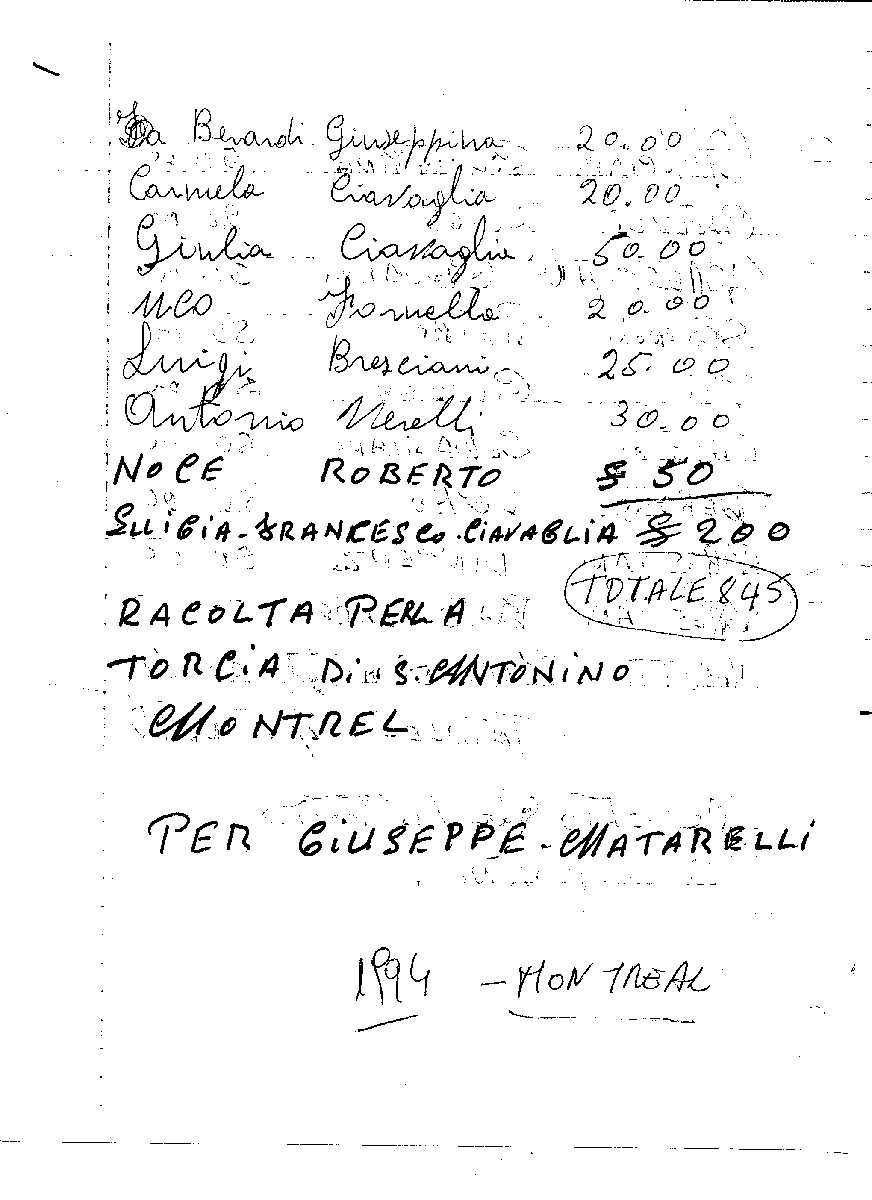 Berardi Giuseppina 20.00
Carmela Ciavaglia 20.00
Giulia Ciavaglia 50.00
Fornella 20.00
Luigi Bresciani 25.00
Antonio Merelli 30.00
NOCE ROBERTO $ 50
FRANCESCO CIAVAGLIA $ 200
TOTALE 845
RACOLTA PERLA
TORCIA Di S. ANTONINO
MONTREL
PER GIUSEPPE - MATARELLI
1994 - MONTREAL